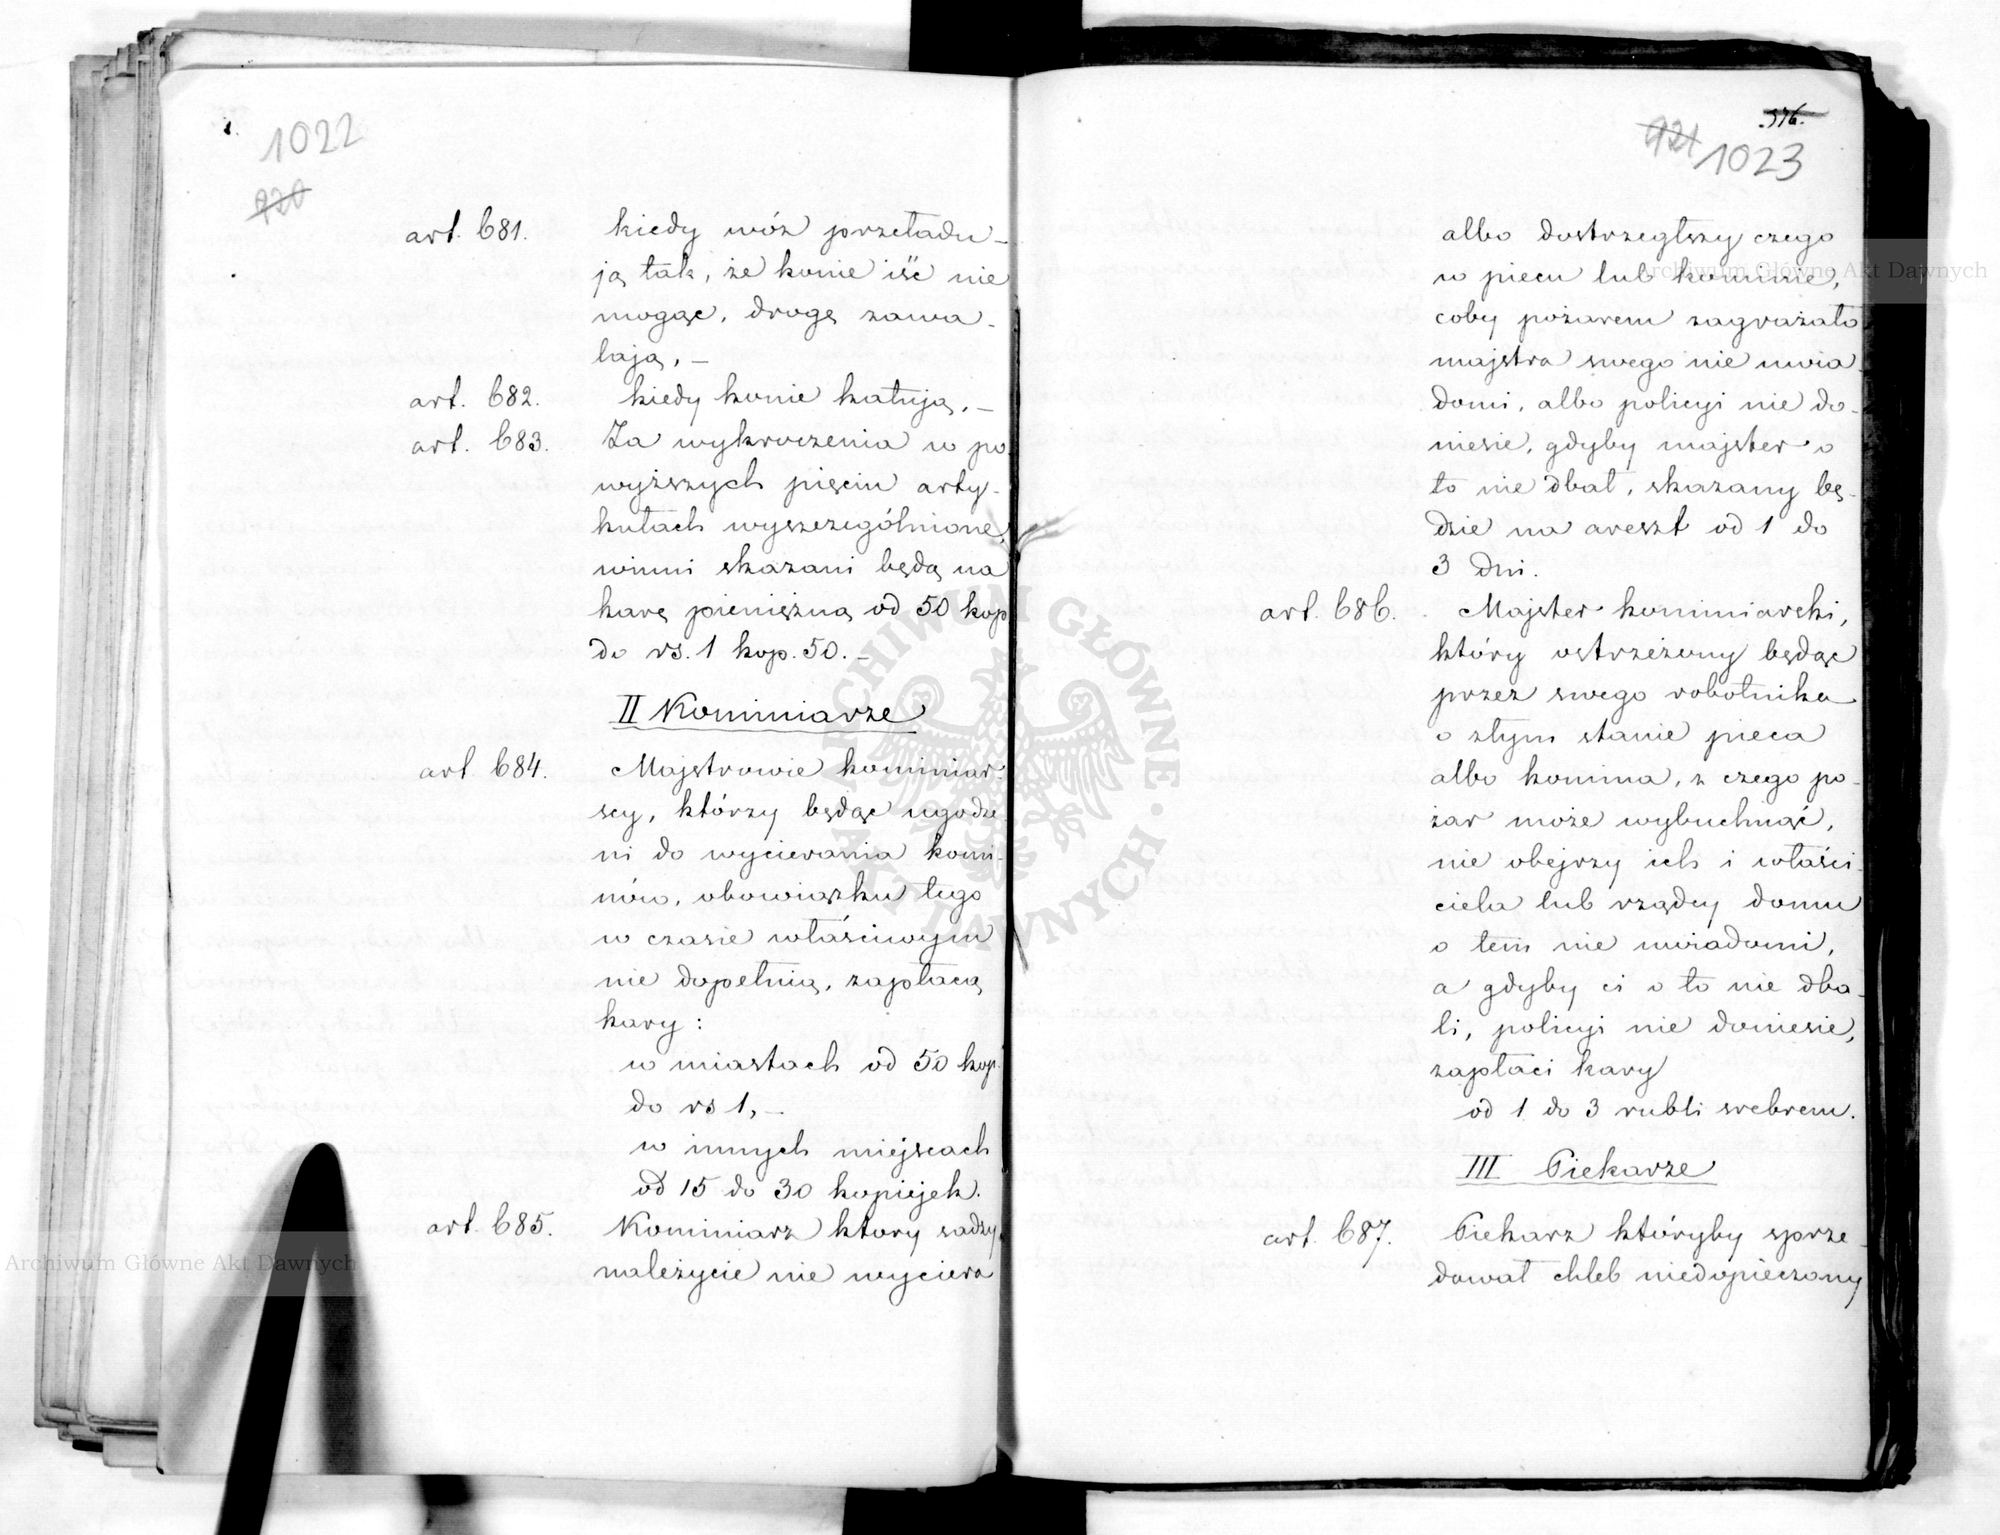 1022
920
art. 681.
kiedy wóz przeładu-
ją tak, że konie iść nie
mogąc, drogę zawa-
lają, —
art. 682.
kiedy konie katują, —
art. 683.
Za wykroczenia w po
wyższych pięciu arty-
kułach wyszczególnione,
winni skazani będą na
karę pieniężną od 50 kop
do rs. 1 kop. 50. —
II Kominiarze
art 684.
Majstrowie kominiar-
scy, którzy będąc ugodze
ni do wycierania komi-
nów, obowiązku tego
w czasie właściwym
nie dopełnią, zapłacą
kary:
w miastach od 50 kop.
do rs 1, —
w innych miejscach
od 15 do 30 kopiejek.
art. 685.
Kominiarz ktory sadzy
należycie nie wyciera
376.
921
1023
albo dostrzegłszy czego
w piecu lub kominie,
coby pożarem zagrażało
majstra swego nie uwia-
domi, albo policyi nie do-
niesie, gdyby majster o
to nie dbał, skazany bę-
dzie na areszt od 1 do
3 dni.
art. 686.
Majster kominiarski,
który ostrzeżony będąc
przez swego robotnika
o złym stanie pieca
albo komina, z czego po-
żar może wybuchnąć,
nie obejrzy ich i właści-
ciela lub rządcy domu
o tem nie uwiadomi,
a gdyby ci o to nie dba-
li, policyi nie doniesie,
zapłaci kary
od 1 do 3 rubli srebrem.
III Piekarze
art. 687.
Piekarz któryby sprze-
dawał chleb niedopieczony
Archiwum Główne Akt Dawnych
Archiwum Główne Akt Dawnych
ARCHIWUM GŁÓWNE AKT DAWNYCH